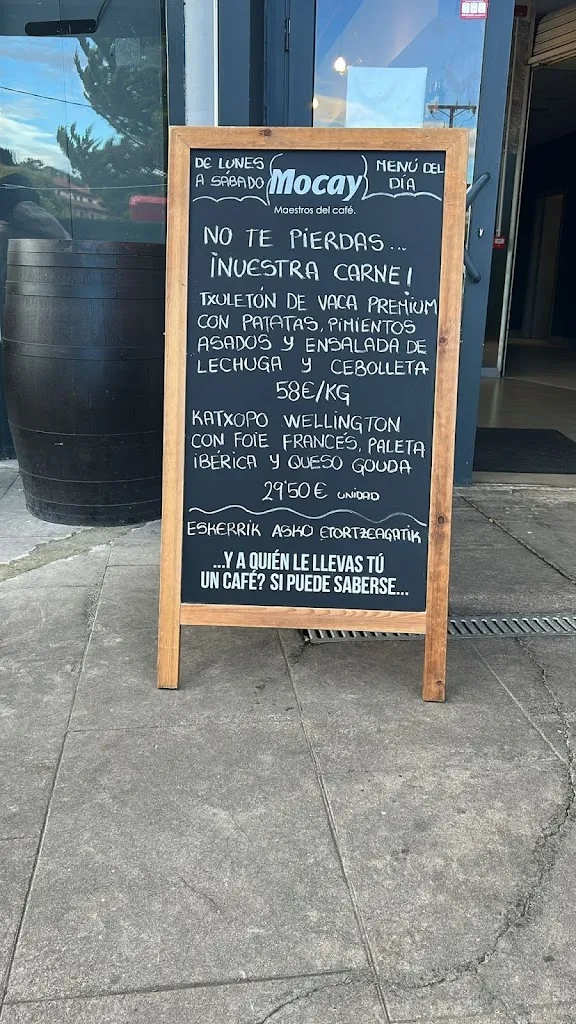 DE LUNES
A SÁBADO
Mocay
Maestros del café.
MENÚ DEL
DÍA
NO TE PIERDAS...
¡NUESTRA CARNE!
TXULETÓN DE VACA PREMIUM
CON PATATAS, PIMIENTOS
ASADOS Y ENSALADA DE
LECHUGA Y CEBOLLETA
58€/KG
KATXOPO WELLINGTON
CON FOIE FRANCÉS, PALETA
IBÉRICA Y QUESO GOUDA
29'50€ UNIDAD
ESKERRIK ASKO ETORTZEAGATIK
...Y A QUIÉN LE LLEVAS TÚ
UN CAFÉ? SI PUEDE SABERSE...